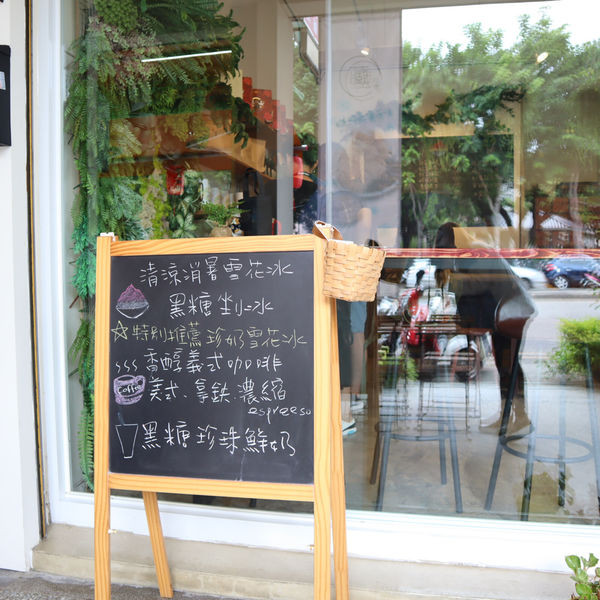 清涼消暑雪花冰
黑糖剉冰
特別推薦珍奶雪花冰
香醇義式咖啡
Coffee
美式、拿鉄、濃縮
espresso
黑糖珍珠鮮奶